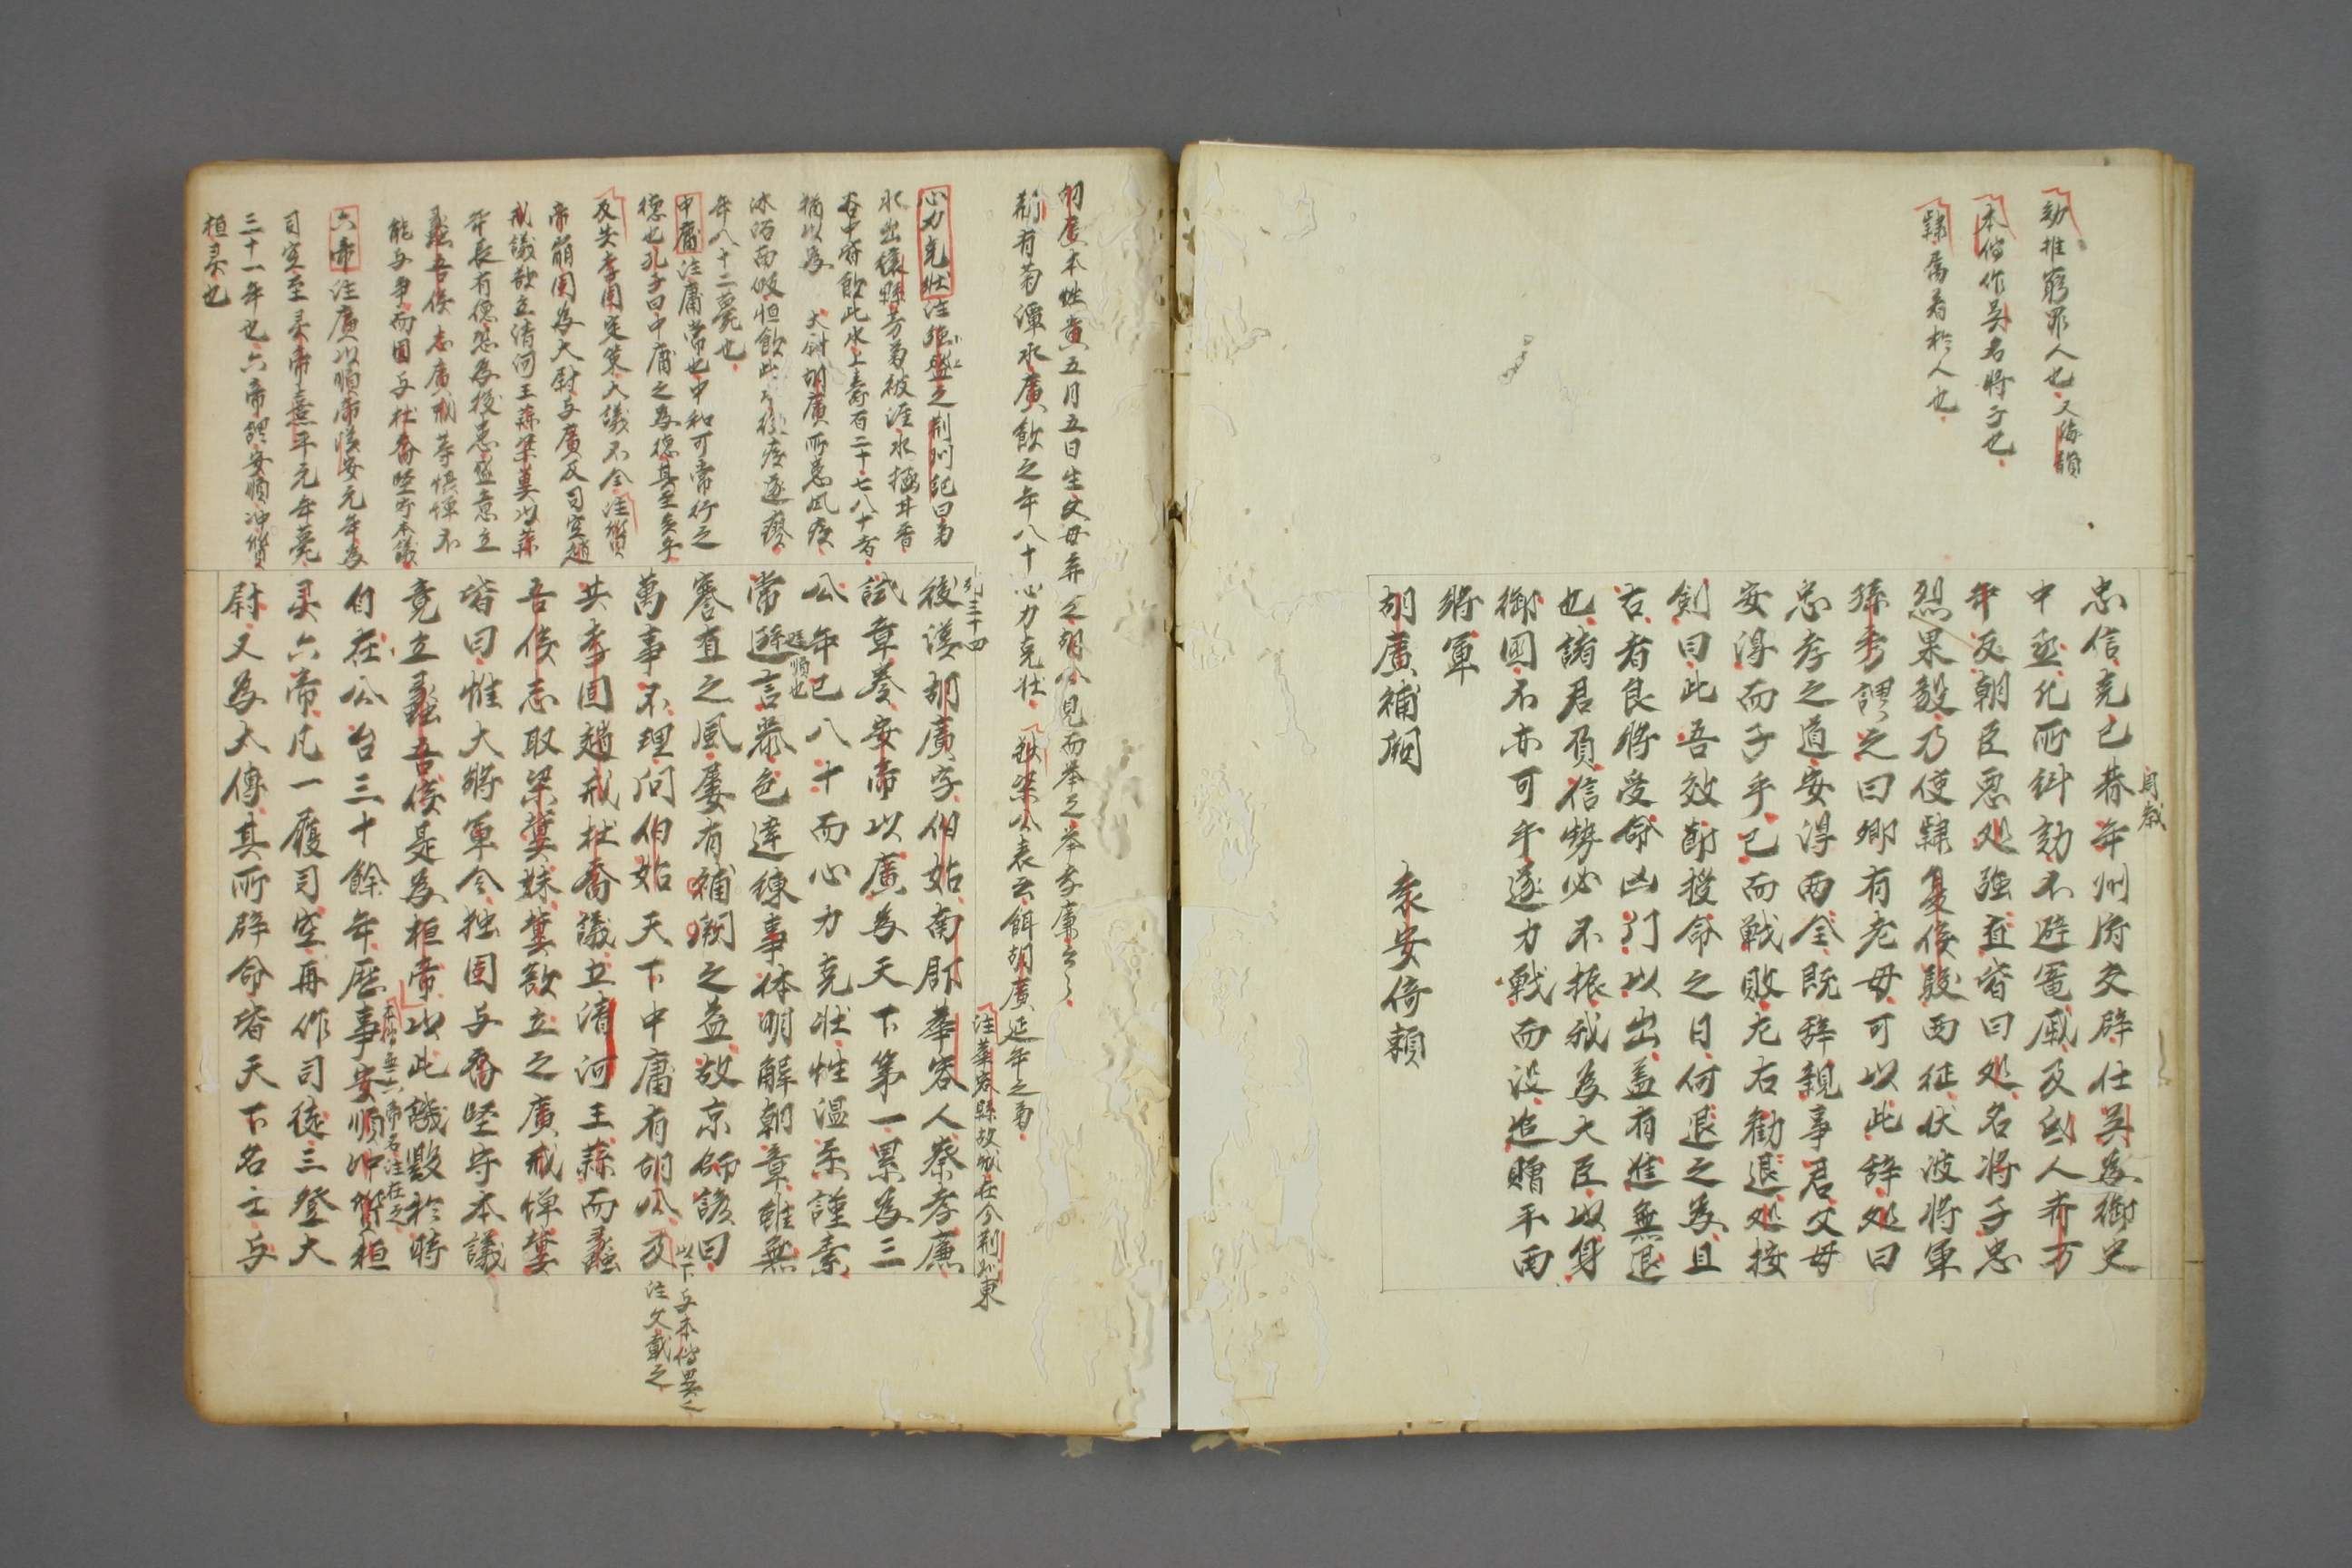 劾推窮罪人也又海韻
本傳作吴名將子也
隷属着於人也
自裁
忠信克己朞年州府交辟仕吴為御史
中丞凡所糾劾不避寵戚及氐人斉万
年反朝臣悪処強直皆曰処名将子忠
烈果毅乃使隷夏侯駿西征伏波将軍
孫秀謂之曰卿有老母可以此辞処曰
忠孝之道安得両全既辞親事君父母
安得而子乎已而戦敗左右勧退処按
剣曰此吾效節授命之日何退之為且
古者良将受命凶門以出盖有進無退
也諸君負信勢必不振我為大臣以身
徇国不亦可乎遂力戦而没追贈平西
将軍
胡廣補闕　袁安倚頼
胡廣本姓黄五月五日生父母弃之胡公見而挙之挙孝廉云々
荊有菊潭水廣飲之年八十心力克壮
梁公表云餌胡廣延年之菊
注華容縣故城在今荊州東
列三十四
後漢胡廣字伯始南郡華容人察孝廉
試章奏安帝以廣為天下第一累為三
公年已八十而心力克壮性温柔謹素
常遜言恭色達練事体明解朝章雖無
遜順也
謇直之風屢有補闕之益故京師諺曰
萬事不理问伯始天下中庸有胡公及
以下与本傳異之
注欠載之
共李固趙戒杜喬議立清河王蒜而蠡
吾侯志取梁冀妹冀欲立之廣戒憚冀
皆曰惟大将軍令独固与喬堅守本議
竟立蠡吾侯是為桓帝以此譏毀於時
自在公台三十餘年歴事安順冲質桓
本傳無六帝名注在之
灵六帝凡一履司空再作司徒三登大
尉又為太傅其所辟命皆天下名士与
心力克壮注強盛之荊州記曰菊
水出穣縣芳菊被涯水極甘香
谷中皆飲此水上壽百二十七八十者
猶以為　太尉胡廣所患風疾
休沐南皈恒飲此水後疾遂瘳
年八十二薨也
中庸注庸常也中和可常行之
徳也孔子曰中庸之為徳其至矣乎
及共李固定策大議不全注質
帝崩固為大尉与廣及司空趙
戒議欲立清河王蒜梁冀以蒜
年長有徳恐為後患盛意立
蠡吾侯志廣戒等懼憚不
能与争而固与杜喬堅守本議
六帝注廣以順帝漢安元年為
司空至灵帝熹平元年薨
三十一年也六帝謂安順冲質
桓灵也